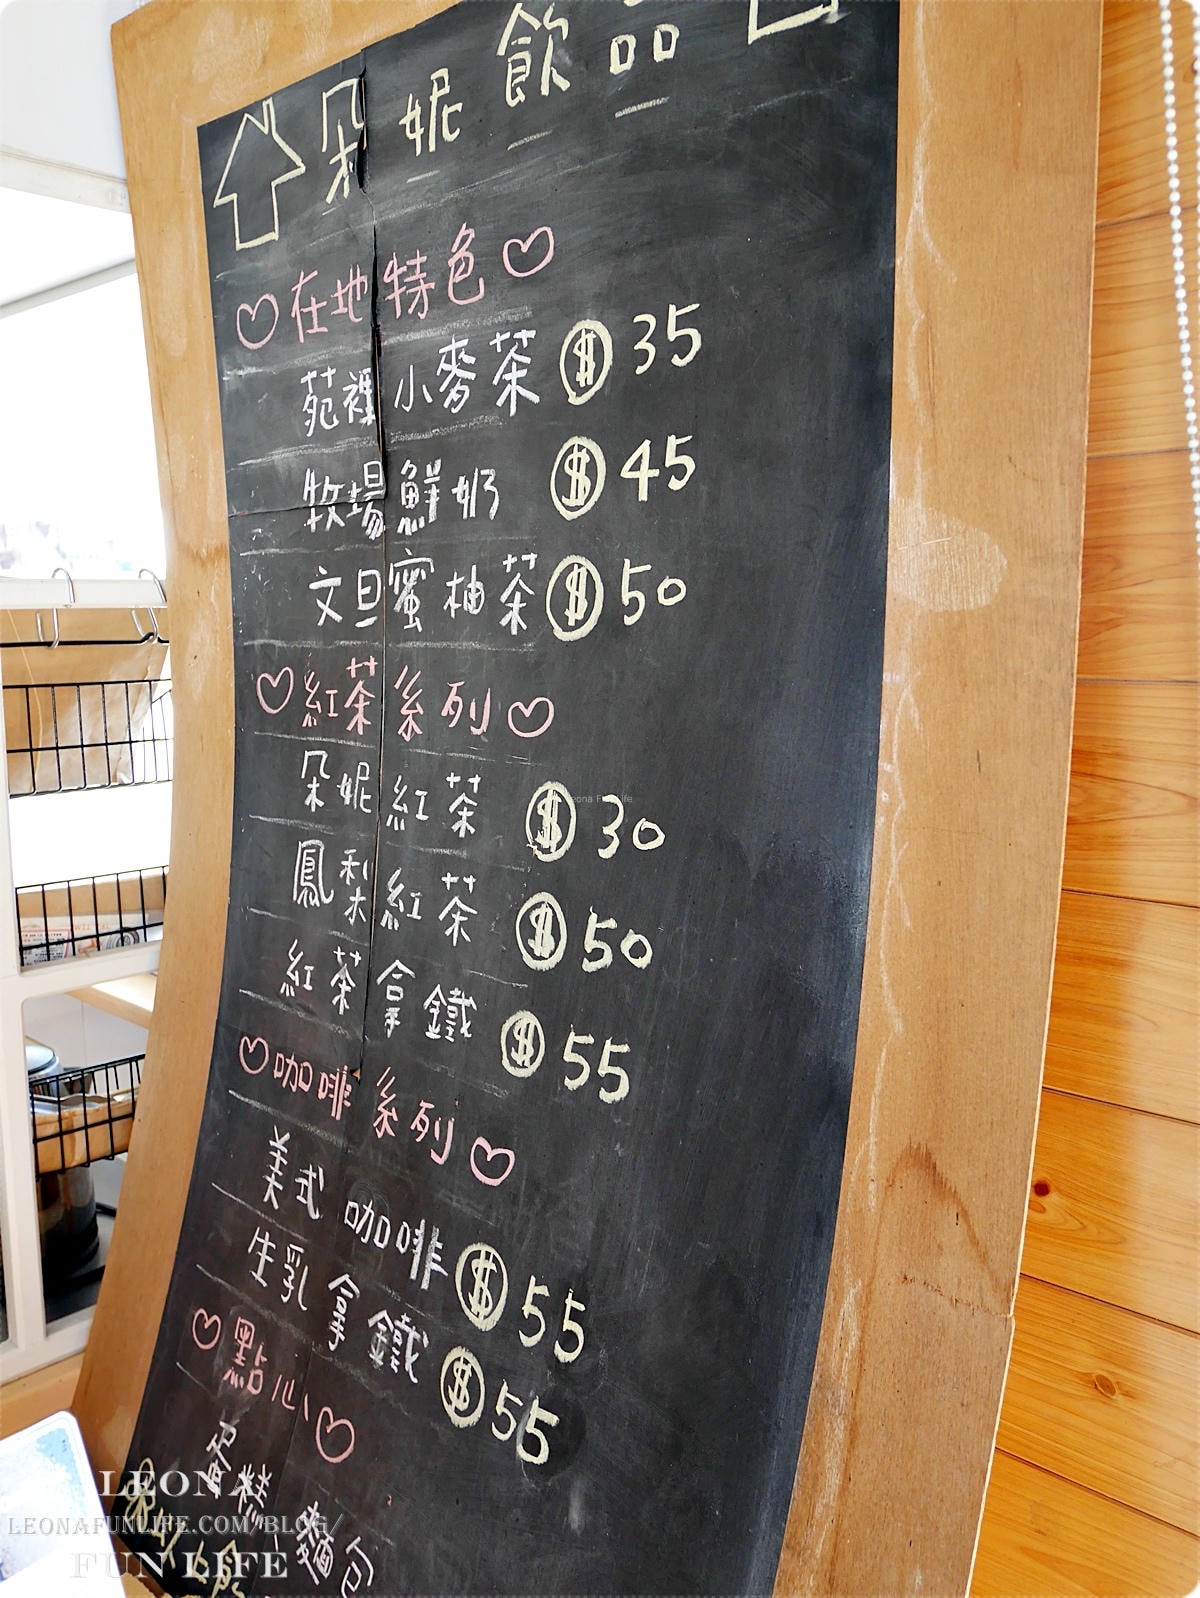 朵妮飲品
♡在地特色♡
苑裡小麥茶 $ 35
牧場鮮奶 $ 45
文旦蜜柚茶 $ 50
♡紅茶系列♡
朵妮紅茶 $ 30
鳳梨紅茶 $ 50
紅茶拿鐵 $ 55
♡咖啡系列♡
美式咖啡 $ 55
生乳拿鐵 $ 55
♡點心♡
麵包
Leona Fun Life
LEONA
LEONAFUNLIFE.COM/BLOG/
FUN LIFE